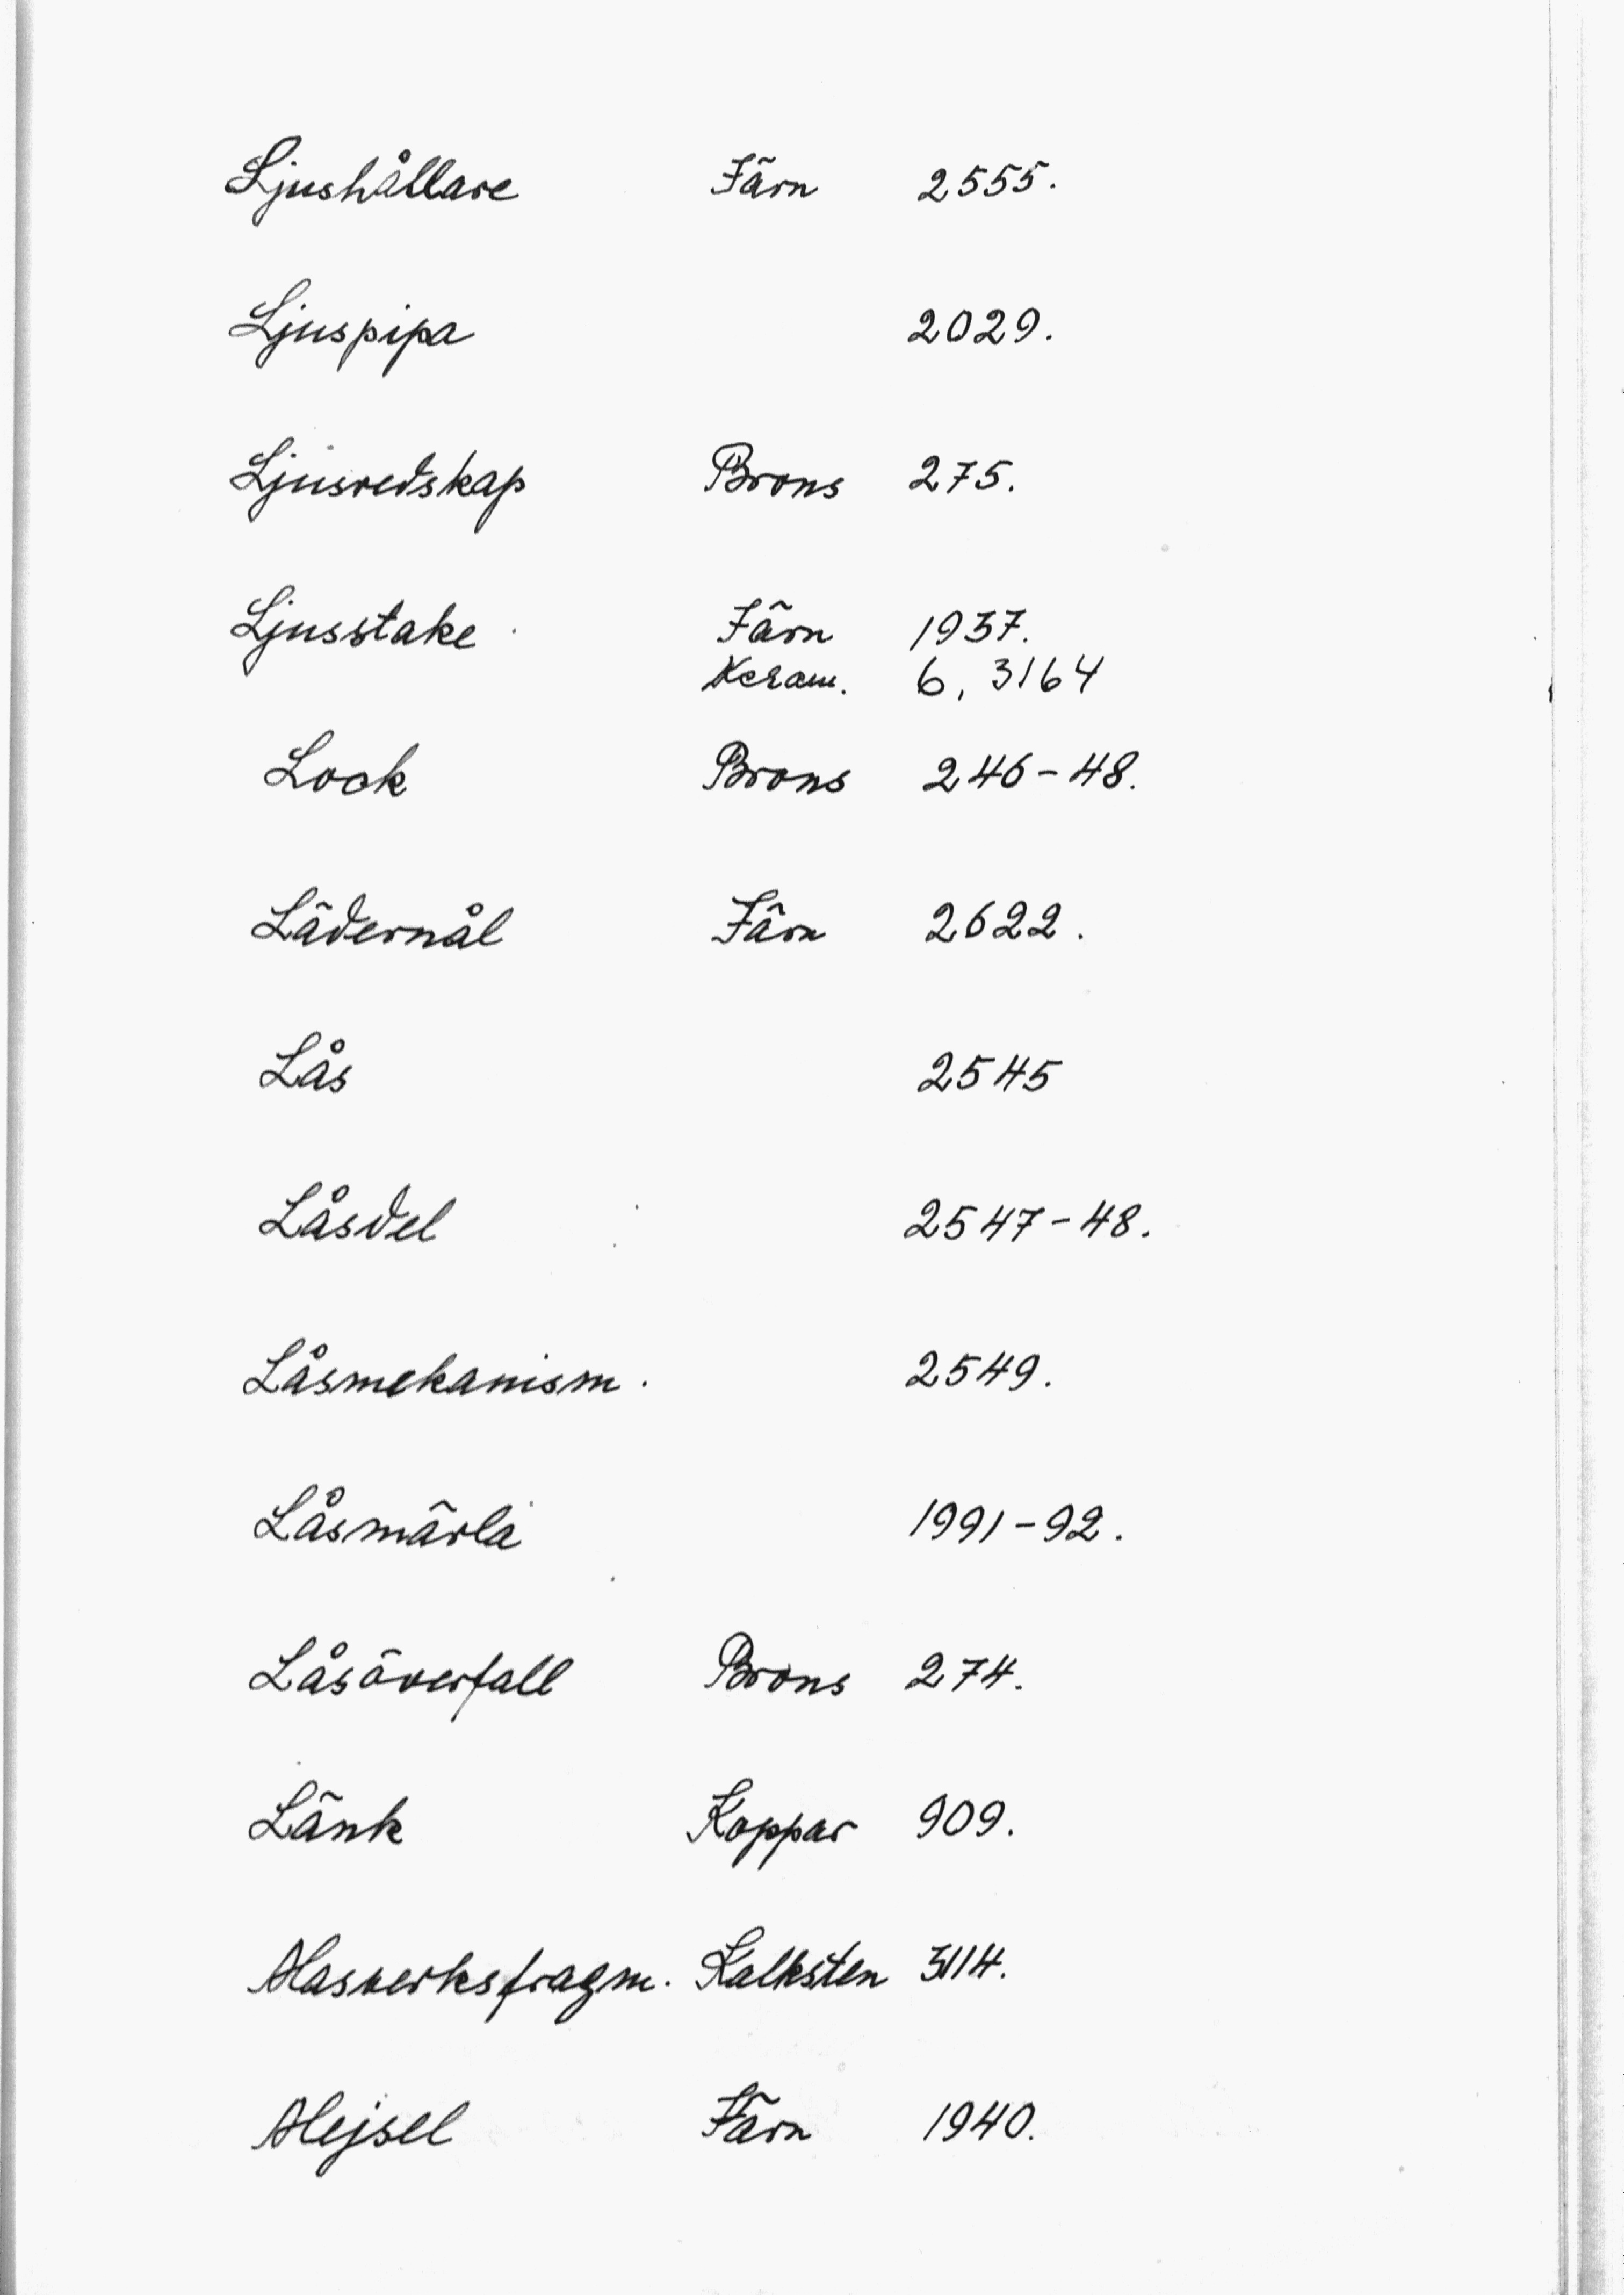 Ljushållare Järn 2555.
Ljuspipa 2029.
Ljusredskap Brons 275.
Ljusstake Järn 1937.
Keram. 6, 3164
Lock Brons 246-48.
Lädernål Järn 2622.
Lås 2545
Låsdel 2547-48.
Låsmekanism. 2549.
Låsmärla 1991-92.
Låsöverfall Brons 274.
Länk Koppar 909.
Masverksfragm. Kalksten 3114.
Mejsel Järn 1940.